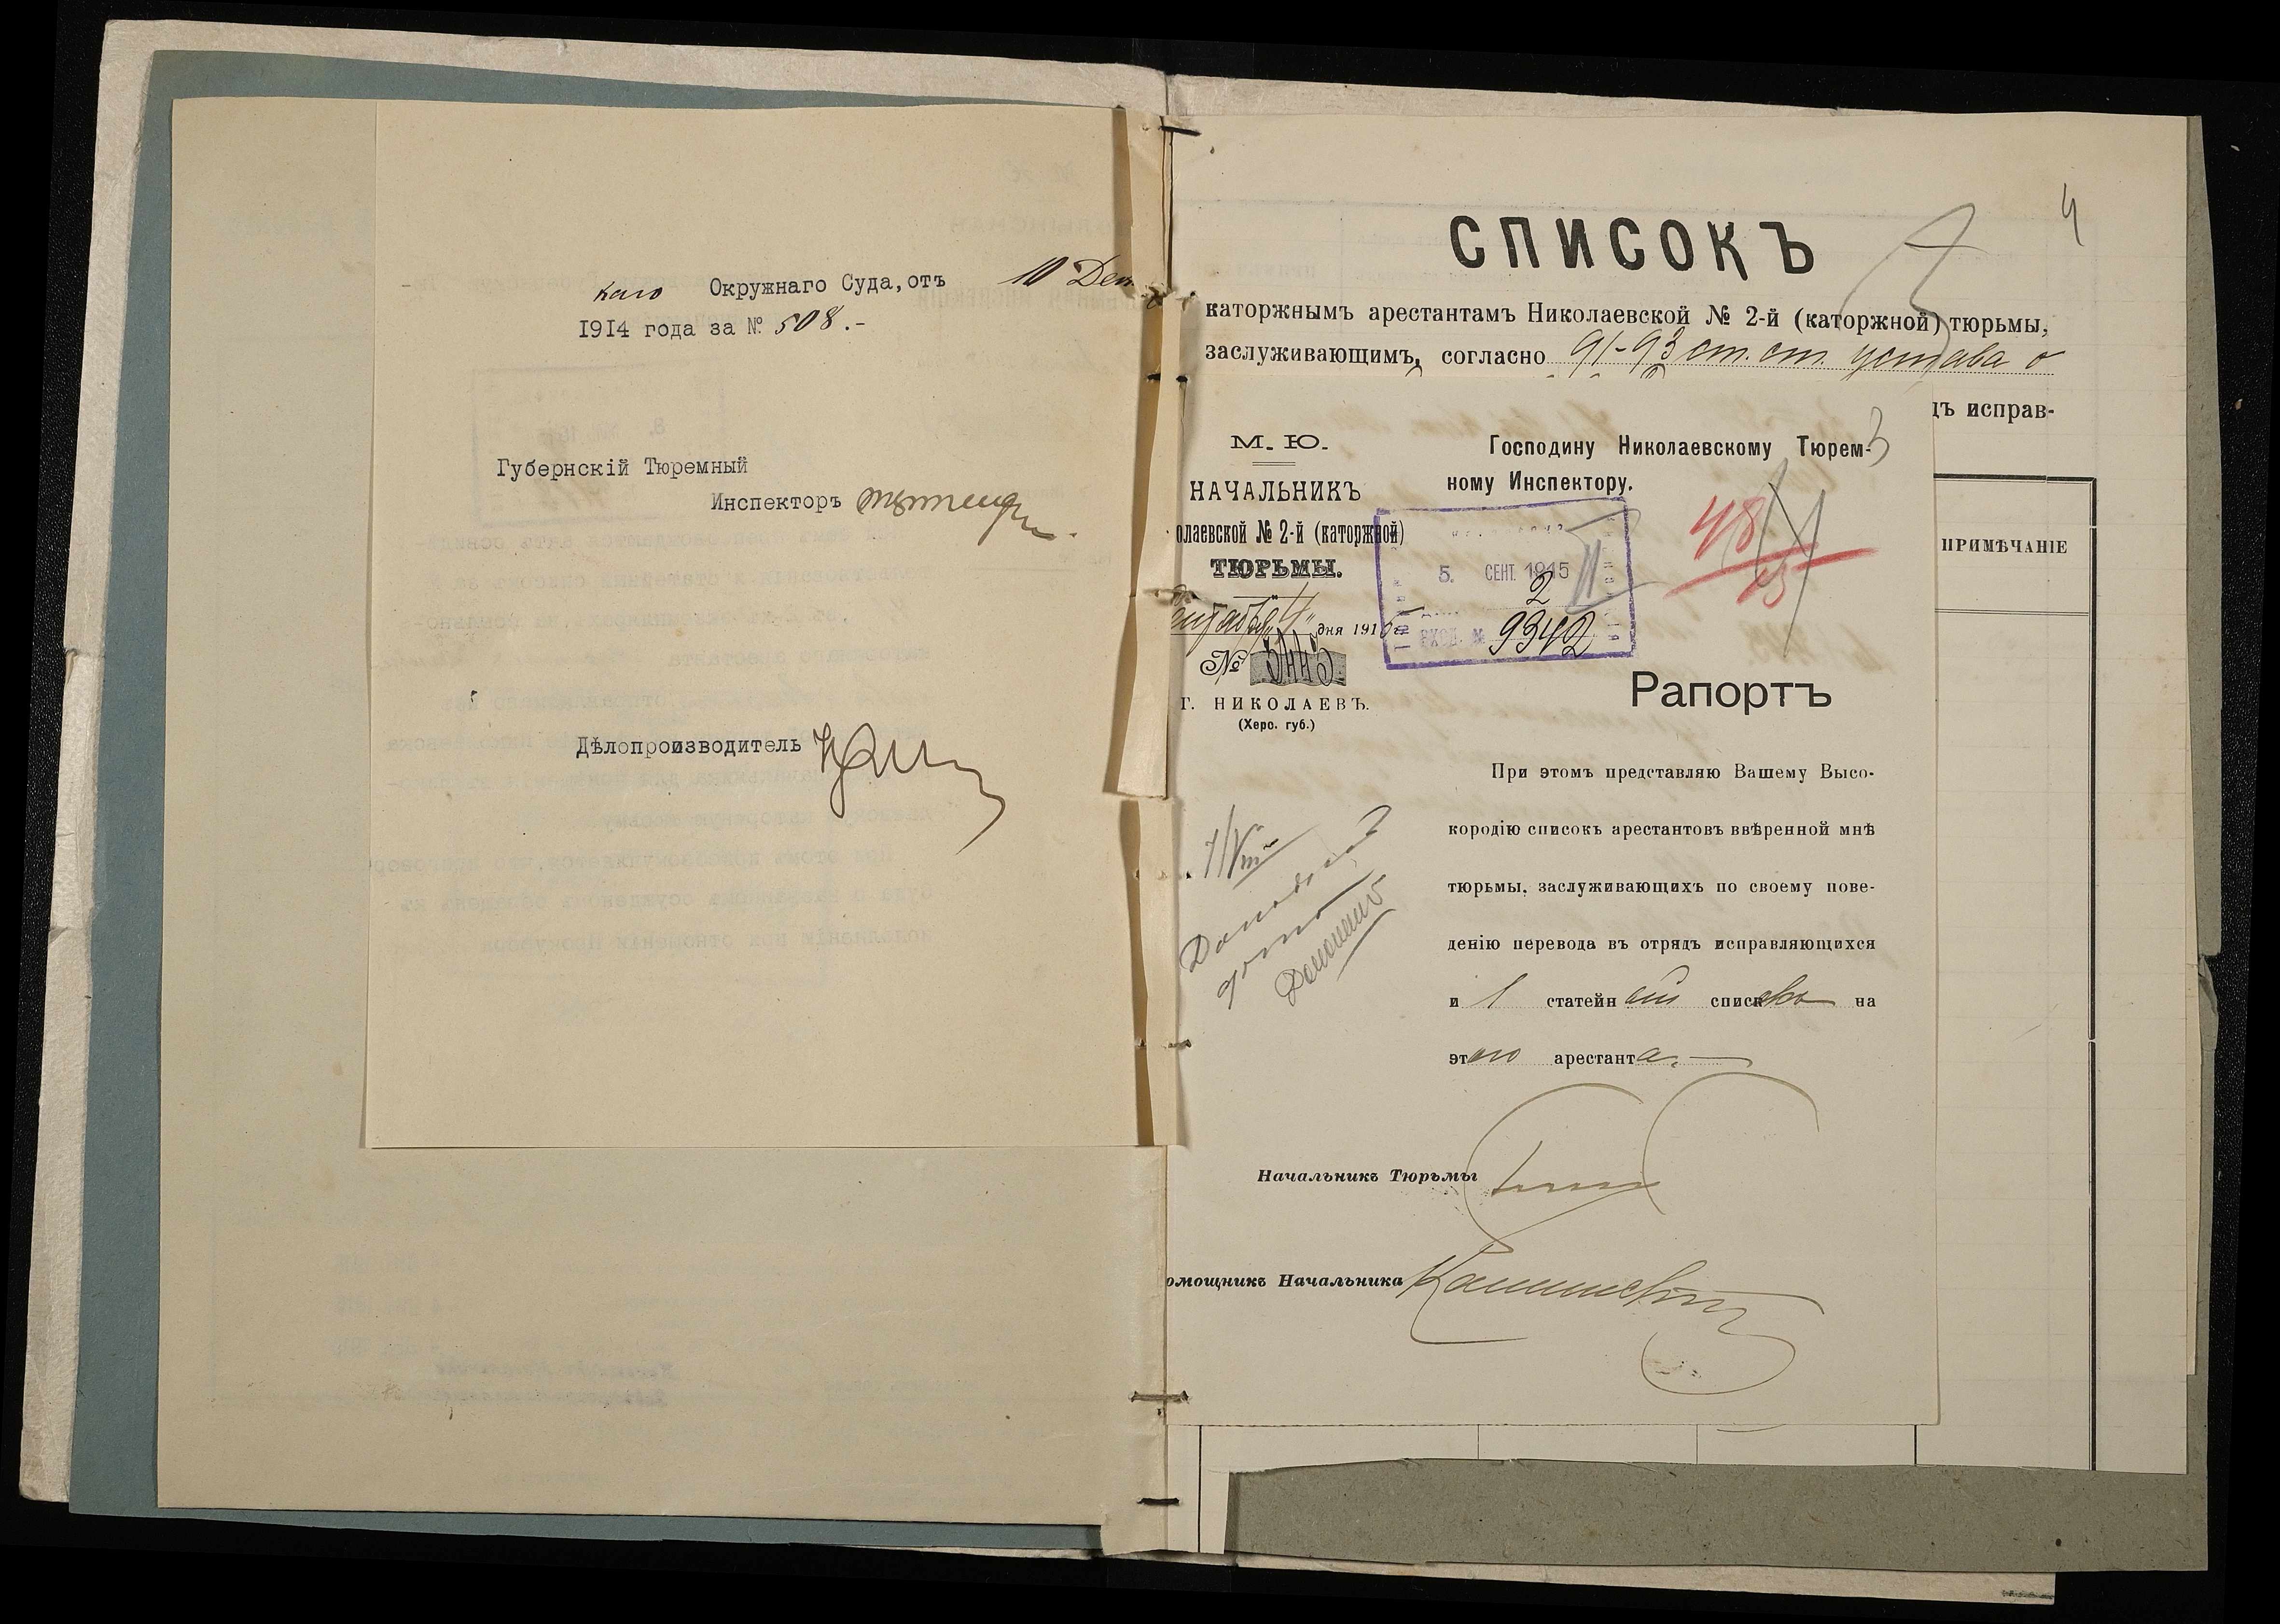 каго Окружнаго Суда, отъ 10 Дек
1914 года за № 508.-
Губернскій Тюремный
Инспекторъ
Дѣлопроизводитель
4
СПИСОКЪ
каторжнымъ арестантамъ Николаевской № 2-й (каторжной) тюрьмы,
заслуживающимъ, согласно 91-93 ст. ст. устава о
ъ исправ-
ПРИМѢЧАНІЕ
3
М. Ю.
НАЧАЛЬНИКЪ
олаевской № 2-й (каторжной)
ТЮРЬМЫ.
4" дня 1915
№ 5445
Г. НИКОЛАЕВЪ.
(Херс. губ.)
Господину Николаевскому Тюрем-
ному Инспектору.
5. СЕНТ. 1915
2
ВХОД. № 9342
48
Рапортъ
При этомъ представляю Вашему Высо-
кородію списокъ арестантовъ ввѣренной мнѣ
тюрьмы, заслуживающихъ по своему пове-
денію перевода въ отрядъ исправляющихся
и 1 статейный списокъ на
этого арестанта.
Начальникъ Тюрьмы
омощникъ Начальника